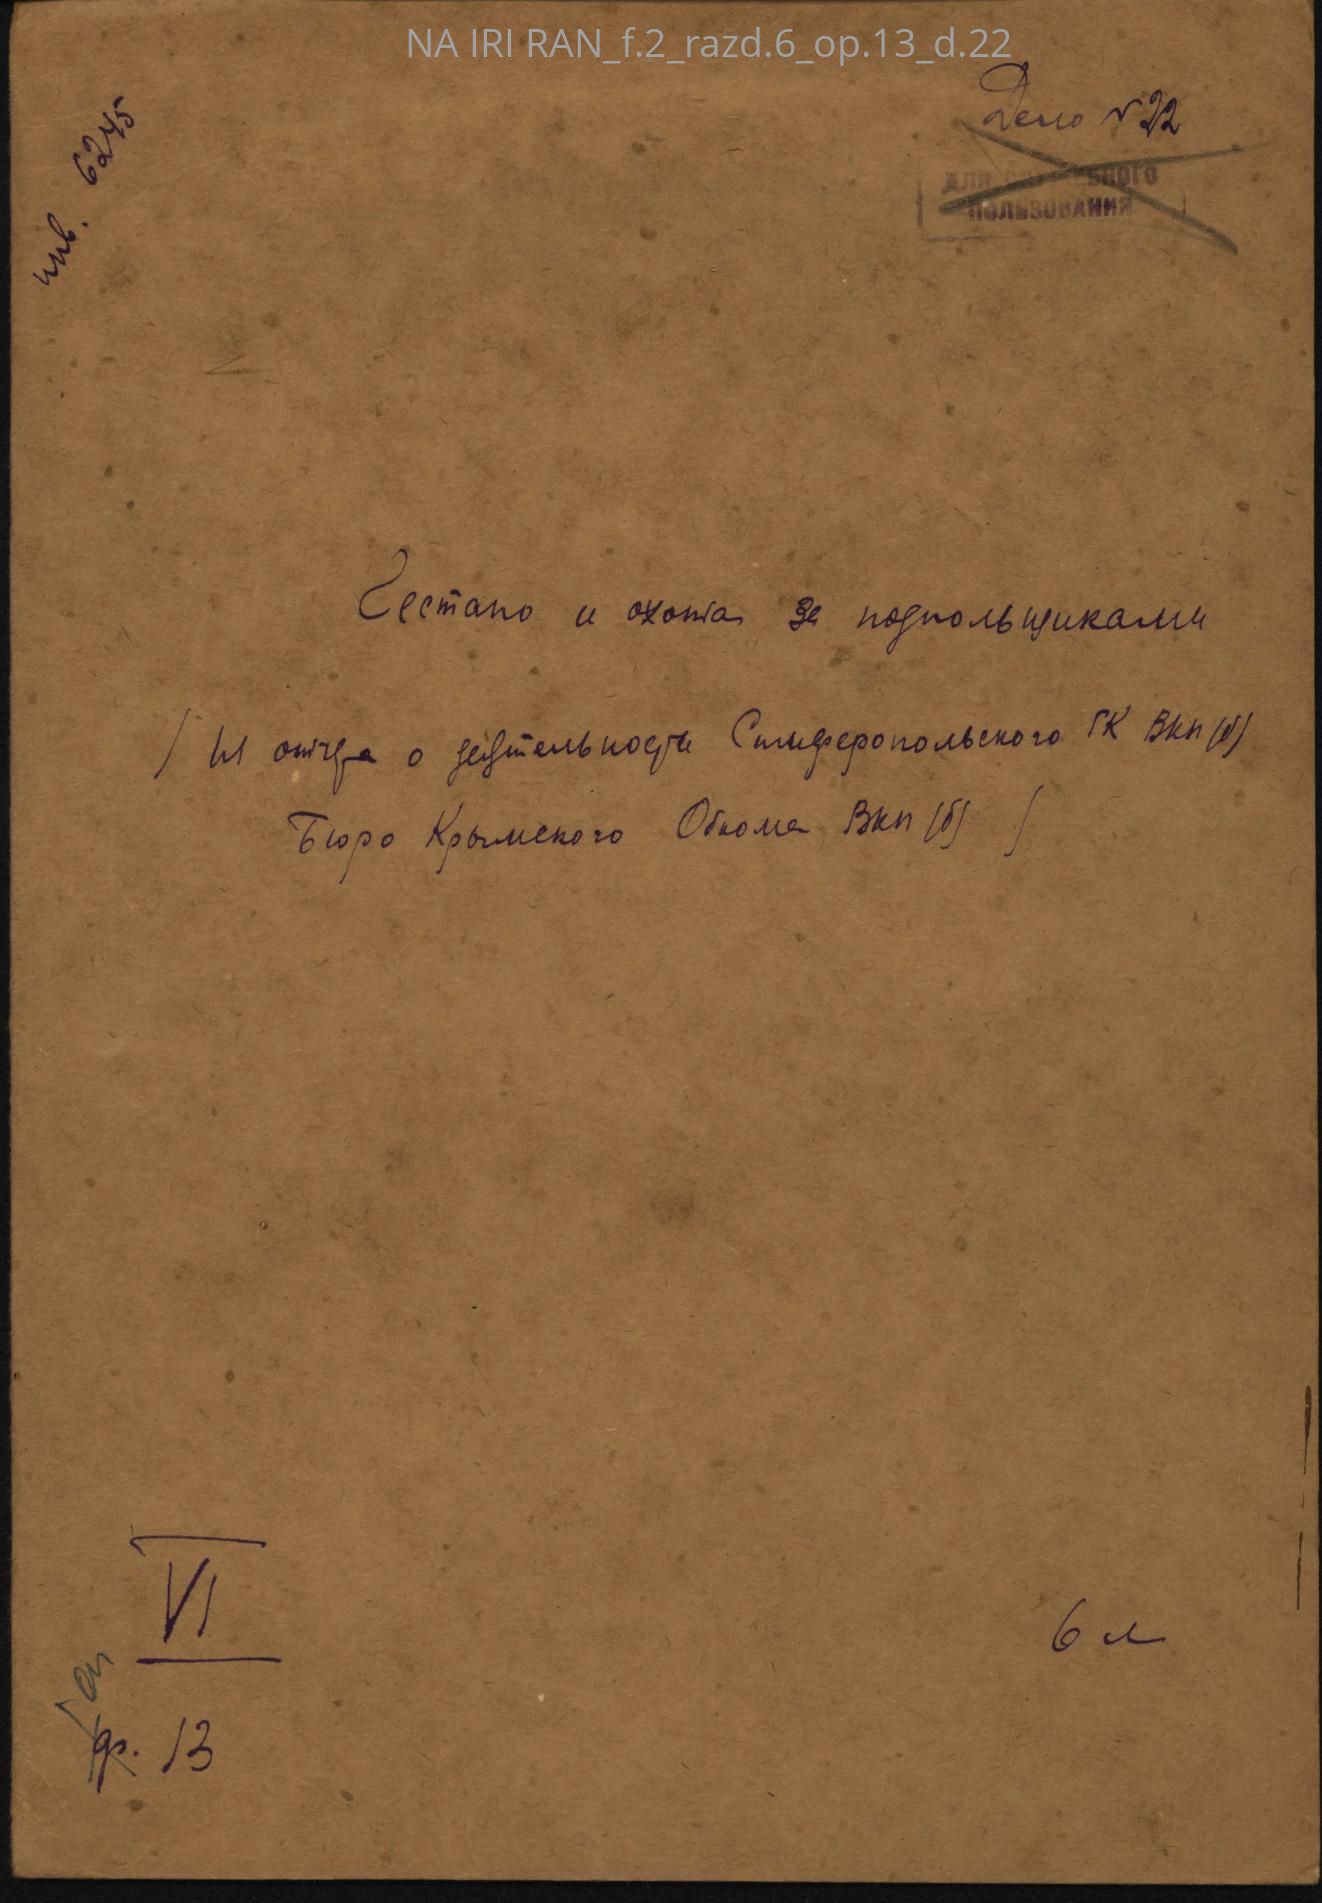 NA IRI RAN_f.2_razd.6_op.13_d.22
Дело № 22
инв. 6245
ДЛЯ СЛУЖЕБНОГО
ПОЛЬЗОВАНИЯ
Гестапо и охота за подпольщиками
/ Из отчета о деятельности Симферопольского ГК ВКП(б)
Бюро Крымского Обкома ВКП(б) /
VI
оп
ф. 13
6 л